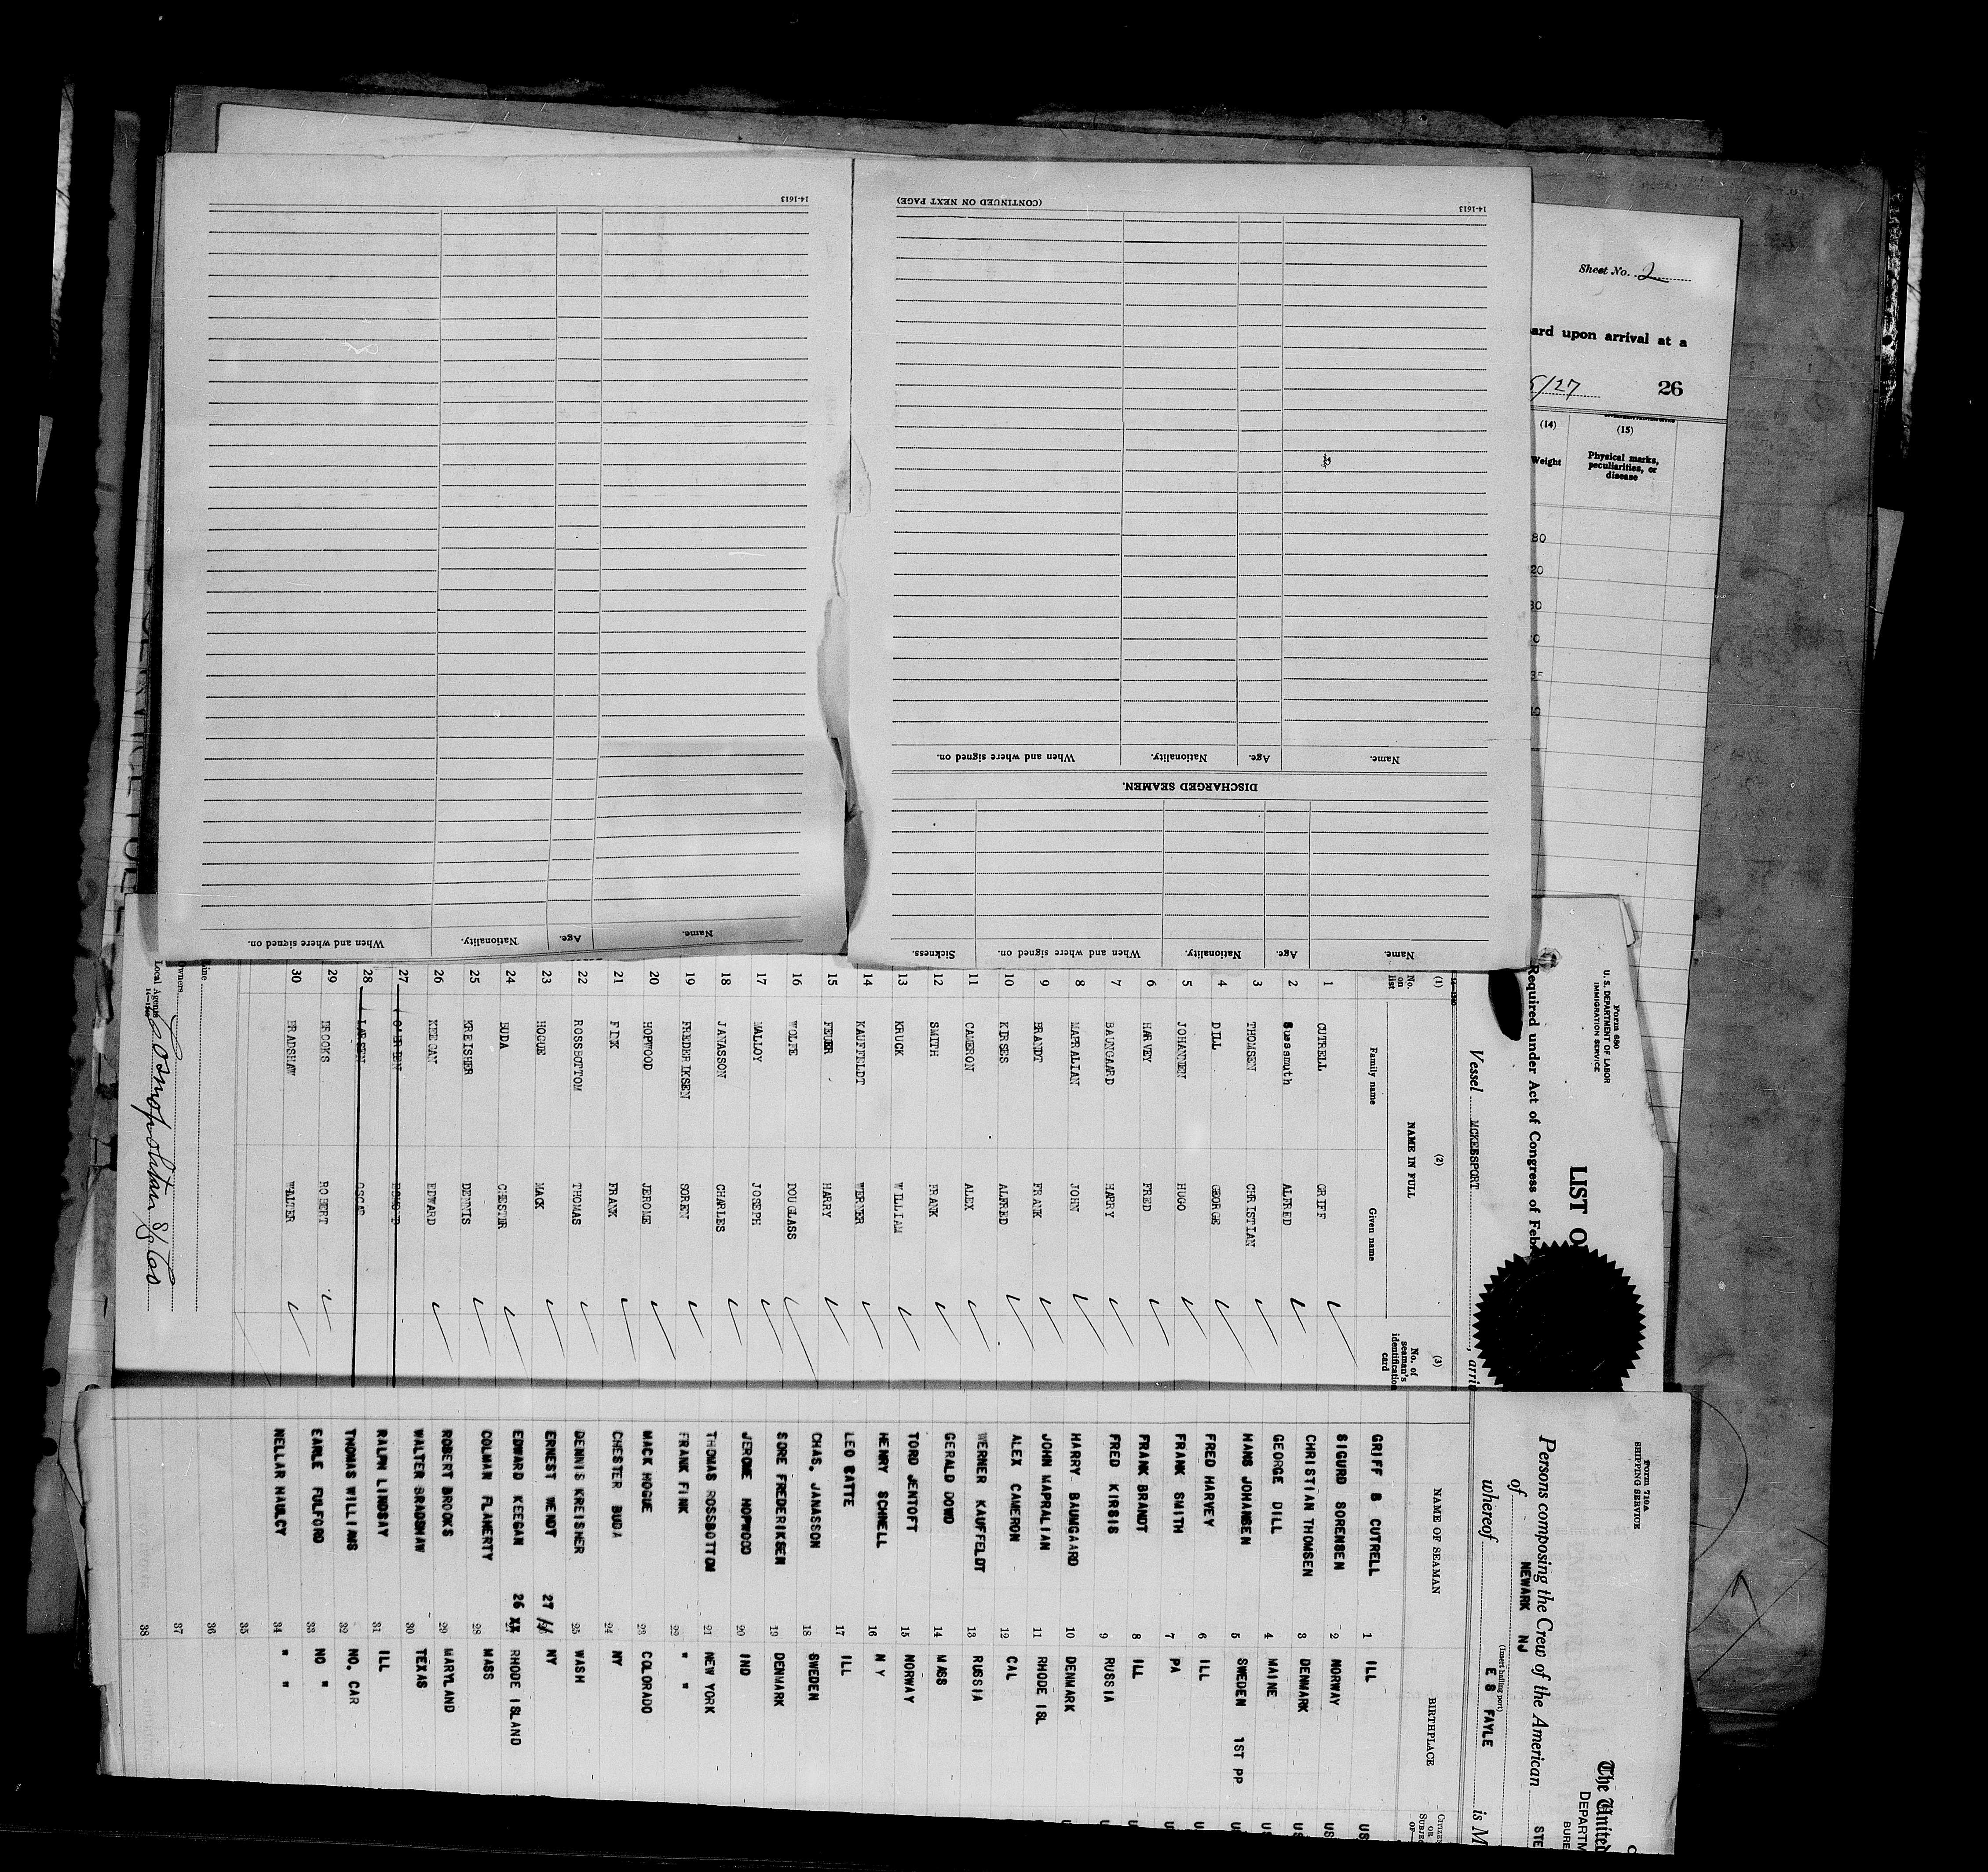 14-1613
Name.
Age.
Nationality.
When and where signed on.
14-1613
(CONTINUED ON NEXT PAGE)
Name.
Age.
Nationality.
When and where signed on.
DISCHARGED SEAMEN.
Name.
Age.
Nationality.
When and where signed on.
Sickness.
Sheet No. 2
ard upon arrival at a
/27 26
(14) (15)
Weight Physical marks, peculiarities, or disease
Form 680
U. S. DEPARTMENT OF LABOR
IMMIGRATION SERVICE
LIST O
Required under Act of Congress of Feb
Vessel MCKEESPORT, arri
(1) (2) (3)
No. on list NAME IN FULL No. of seaman's identification card
Family name Given name
1 CUTRELL GRIFF
2 Suessmuth ALFRED
3 THOMSEN CHRISTIAN
4 DILL GEORGE
5 JOHANNEN HUGO
6 HARVEY FRED
7 BAUNGAARD HARRY
8 MAPRALIAN JOHN
9 BRANDT FRANK
10 KIRSES ALFRED
11 CAMERON ALEX
12 SMITH FRANK
13 KRUCK WILLIAM
14 KAUFFELDT WERNER
15 FEUER HARRY
16 WOLFE DOUGLASS
17 MALLOY JOSEPH
18 JANASSON CHARLES
19 FREDERIKSEN SOREN
20 HOPWOOD JEROME
21 FINK FRANK
22 ROSSBOTTOM THOMAS
23 HOGUE MACK
24 BUDA CHESTER
25 KREISHER DENNIS
26 KEEGAN EDWARD
27
28 LARSEN OSCAR
29 BROOKS ROBERT
30 BRADSHAW WALTER
Line
Owners
Local Agents Cosmopolitan S/S Co
Form 710A
SHIPPING SERVICE
The United
DEPARTM
BURE
Persons composing the Crew of the American STE
of NEWARK NJ
(Insert hailing port)
whereof E S FAYLE is M
NAME OF SEAMAN BIRTHPLACE CITIZEN OR SUBJEC OF—
GRIFF B CUTRELL 1 ILL US
SIGURD SORENSEN 2 NORWAY US
CHRISTIAN THOMSEN 3 DENMARK US
GEORGE DILL 4 MAINE US
HANS JOHANSEN 5 SWEDEN 1ST PP US
FRED HARVEY 6 ILL U
FRANK SMITH 7 PA U
FRANK BRANDT 8 ILL U
FRED KIRSIS 9 RUSSIA U
HARRY BAUMGAARD 10 DENMARK U
JOHN MAPRALIAN 11 RHODE ISL
ALEX CAMERON 12 CAL
WERNER KAUFFELDT 13 RUSSIA
GERALD DOWD 14 MASS
TORD JENTOFT 15 NORWAY
HENRY SCHNELL 16 N Y
LEO BATTE 17 ILL
CHAS. JANASSON 18 SWEDEN
SORE FREDERIKSEN 19 DENMARK
JEROME HOPWOOD 20 IND
THOMAS ROSSBOTTOM 21 NEW YORK
FRANK FINK 22 " "
MACK HOGUE 23 COLORADO
CHESTER BUDA 24 NY
DENNIS KREISHER 25 WASH
ERNEST WENDT 27 NY
EDWARD KEEGAN 26 RHODE ISLAND
COLMAN FLAHERTY 28 MASS
ROBERT BROOKS 29 MARYLAND
WALTER BRADSHAW 30 TEXAS
RALPH LINDSAY 31 ILL
THOMAS WILLIAMS 32 NO. CAR
EARLE FULFORD 33 NO "
NELLAR NAULCY 34 " "
35
36
37
38